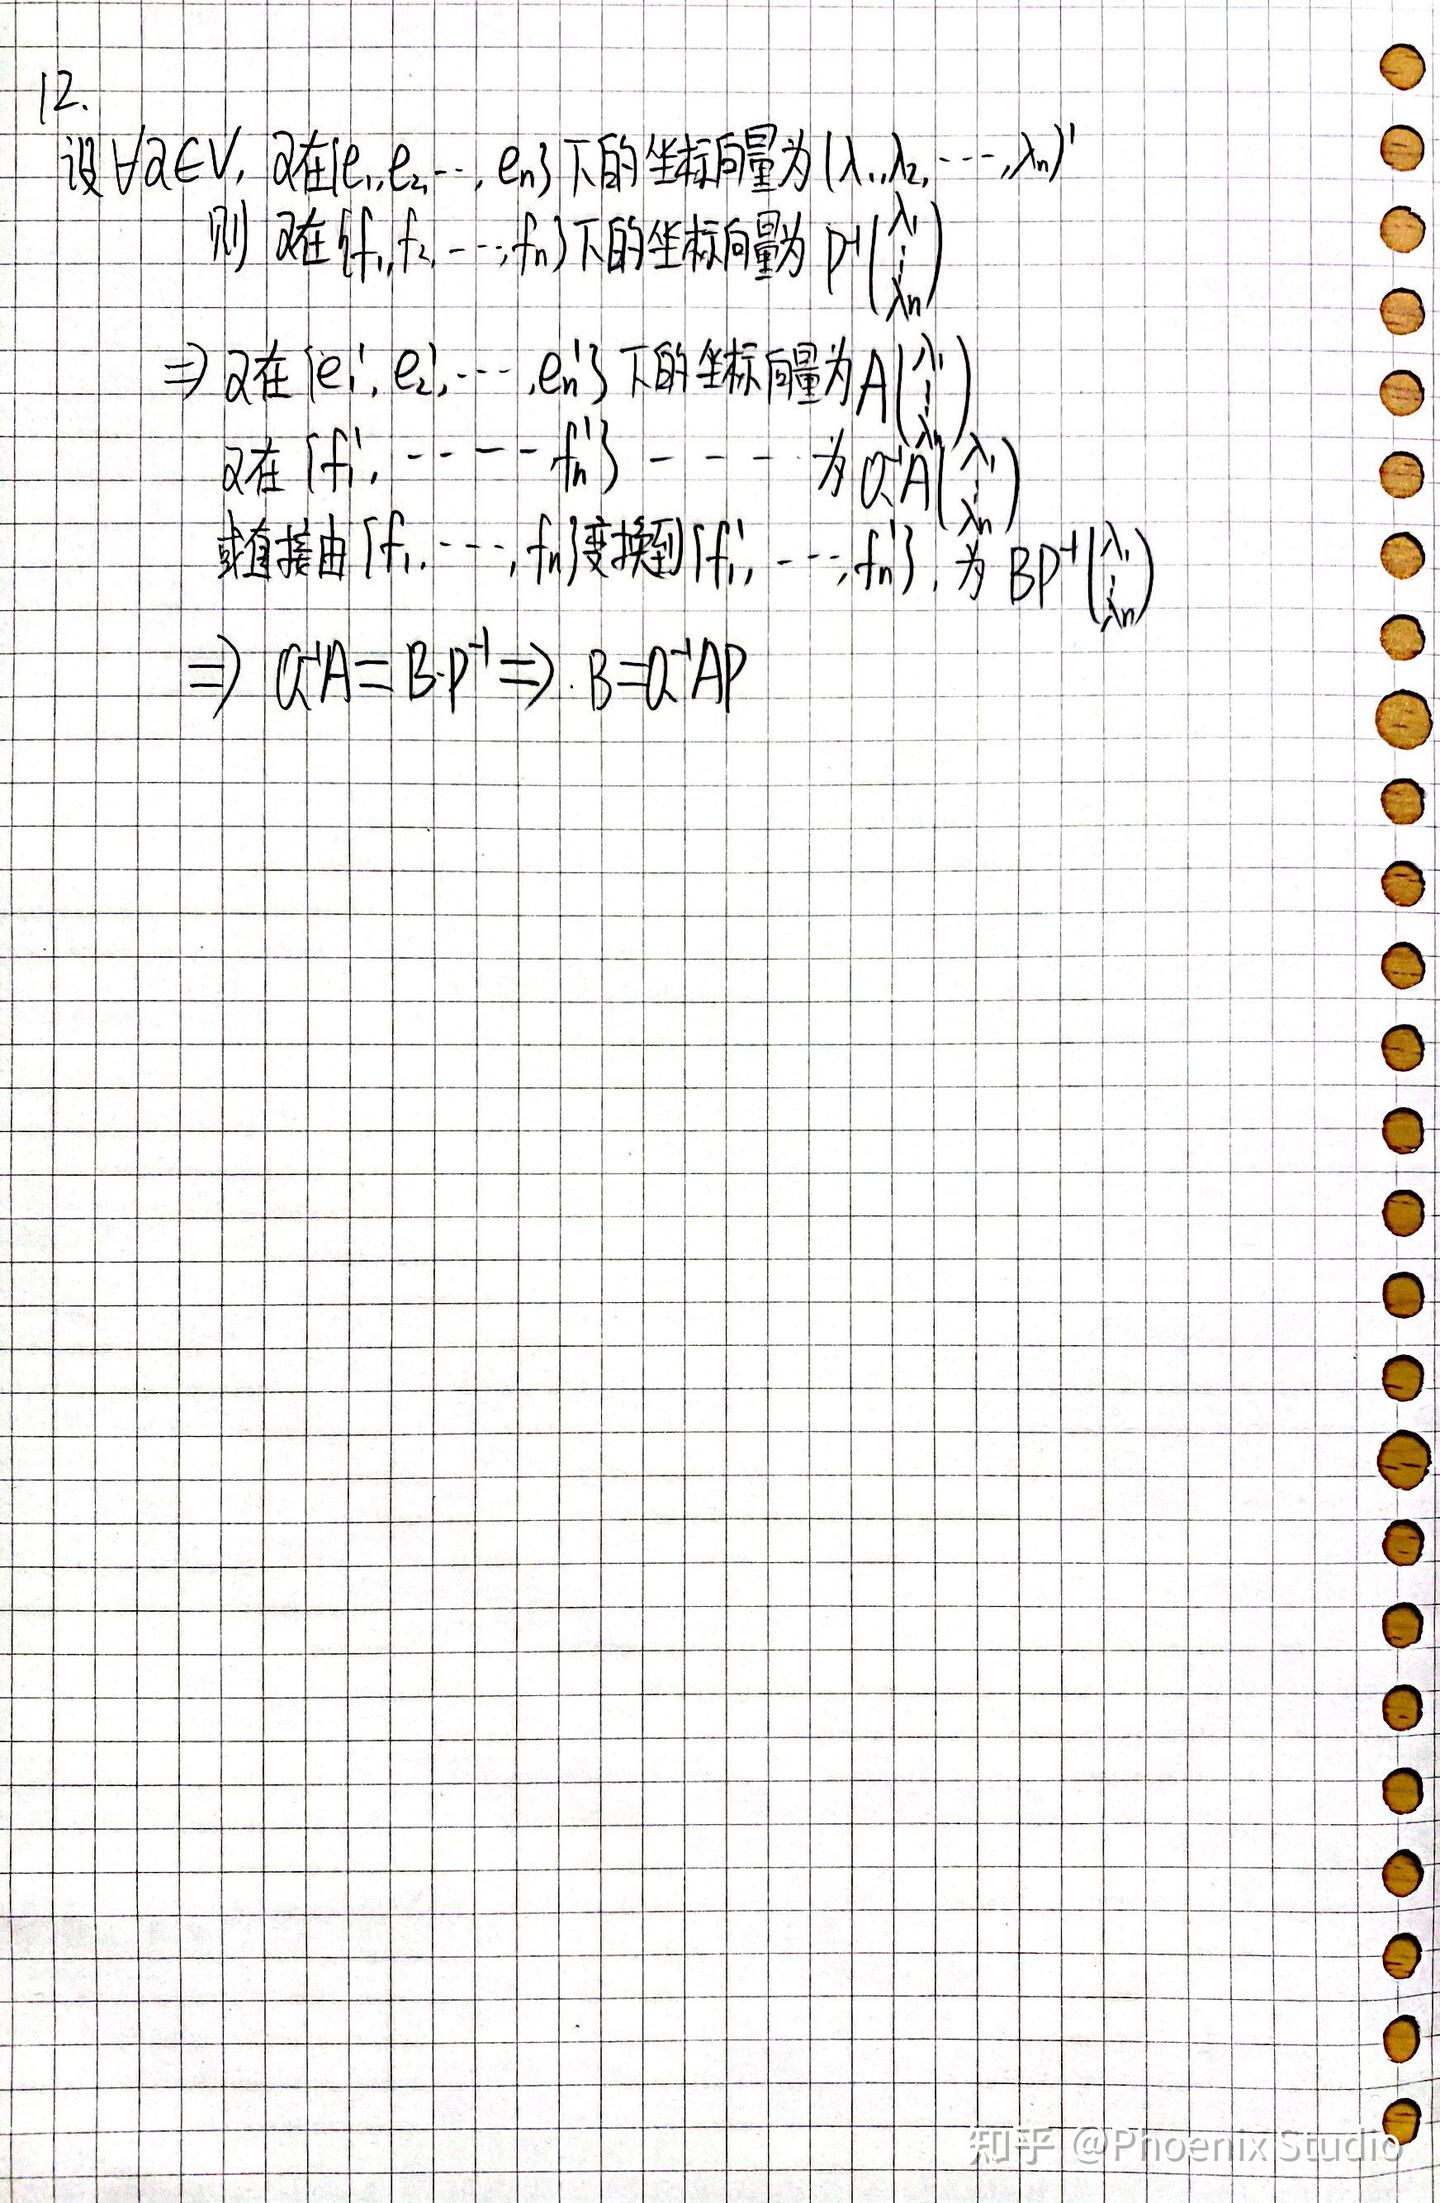 12.
设∀α∈V, α在{e₁,e₂,…,eₙ}下的坐标向量为(λ₁,λ₂,…,λₙ)'
则 α在{f₁,f₂,…,fₙ}下的坐标向量为 P⁻¹(λ₁ ⋮ λₙ)
⇒ α在{e₁',e₂',…,eₙ'}下的坐标向量为 A(λ₁ ⋮ λₙ)
α在{f₁',……fₙ'}————为 Q⁻¹A(λ₁ ⋮ λₙ)
或直接由{f₁,…,fₙ}变换到{f₁',…,fₙ'}, 为 BP⁻¹(λ₁ ⋮ λₙ)
⇒ Q⁻¹A=B·P⁻¹⇒. B=Q⁻¹AP
知乎 @Phoenix Studio